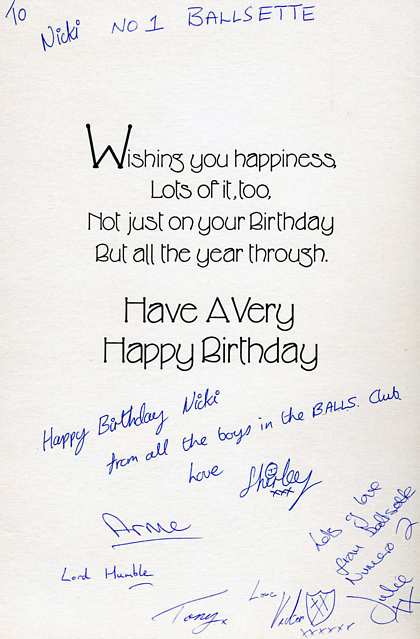 TO
Nicki NO 1 BALLSETTE
Wishing you happiness,
Lots of it, too,
Not just on your Birthday
But all the year through.
Have A Very
Happy Birthday
Happy Birthday Nicki
from all the boys in the BALLS. Club
Love Shirley
xxx
Arme
Lord Humble
Tony x
Love Victor
xxxxx
Lots of love
from Ballsette
Numero 2
Julie
XX